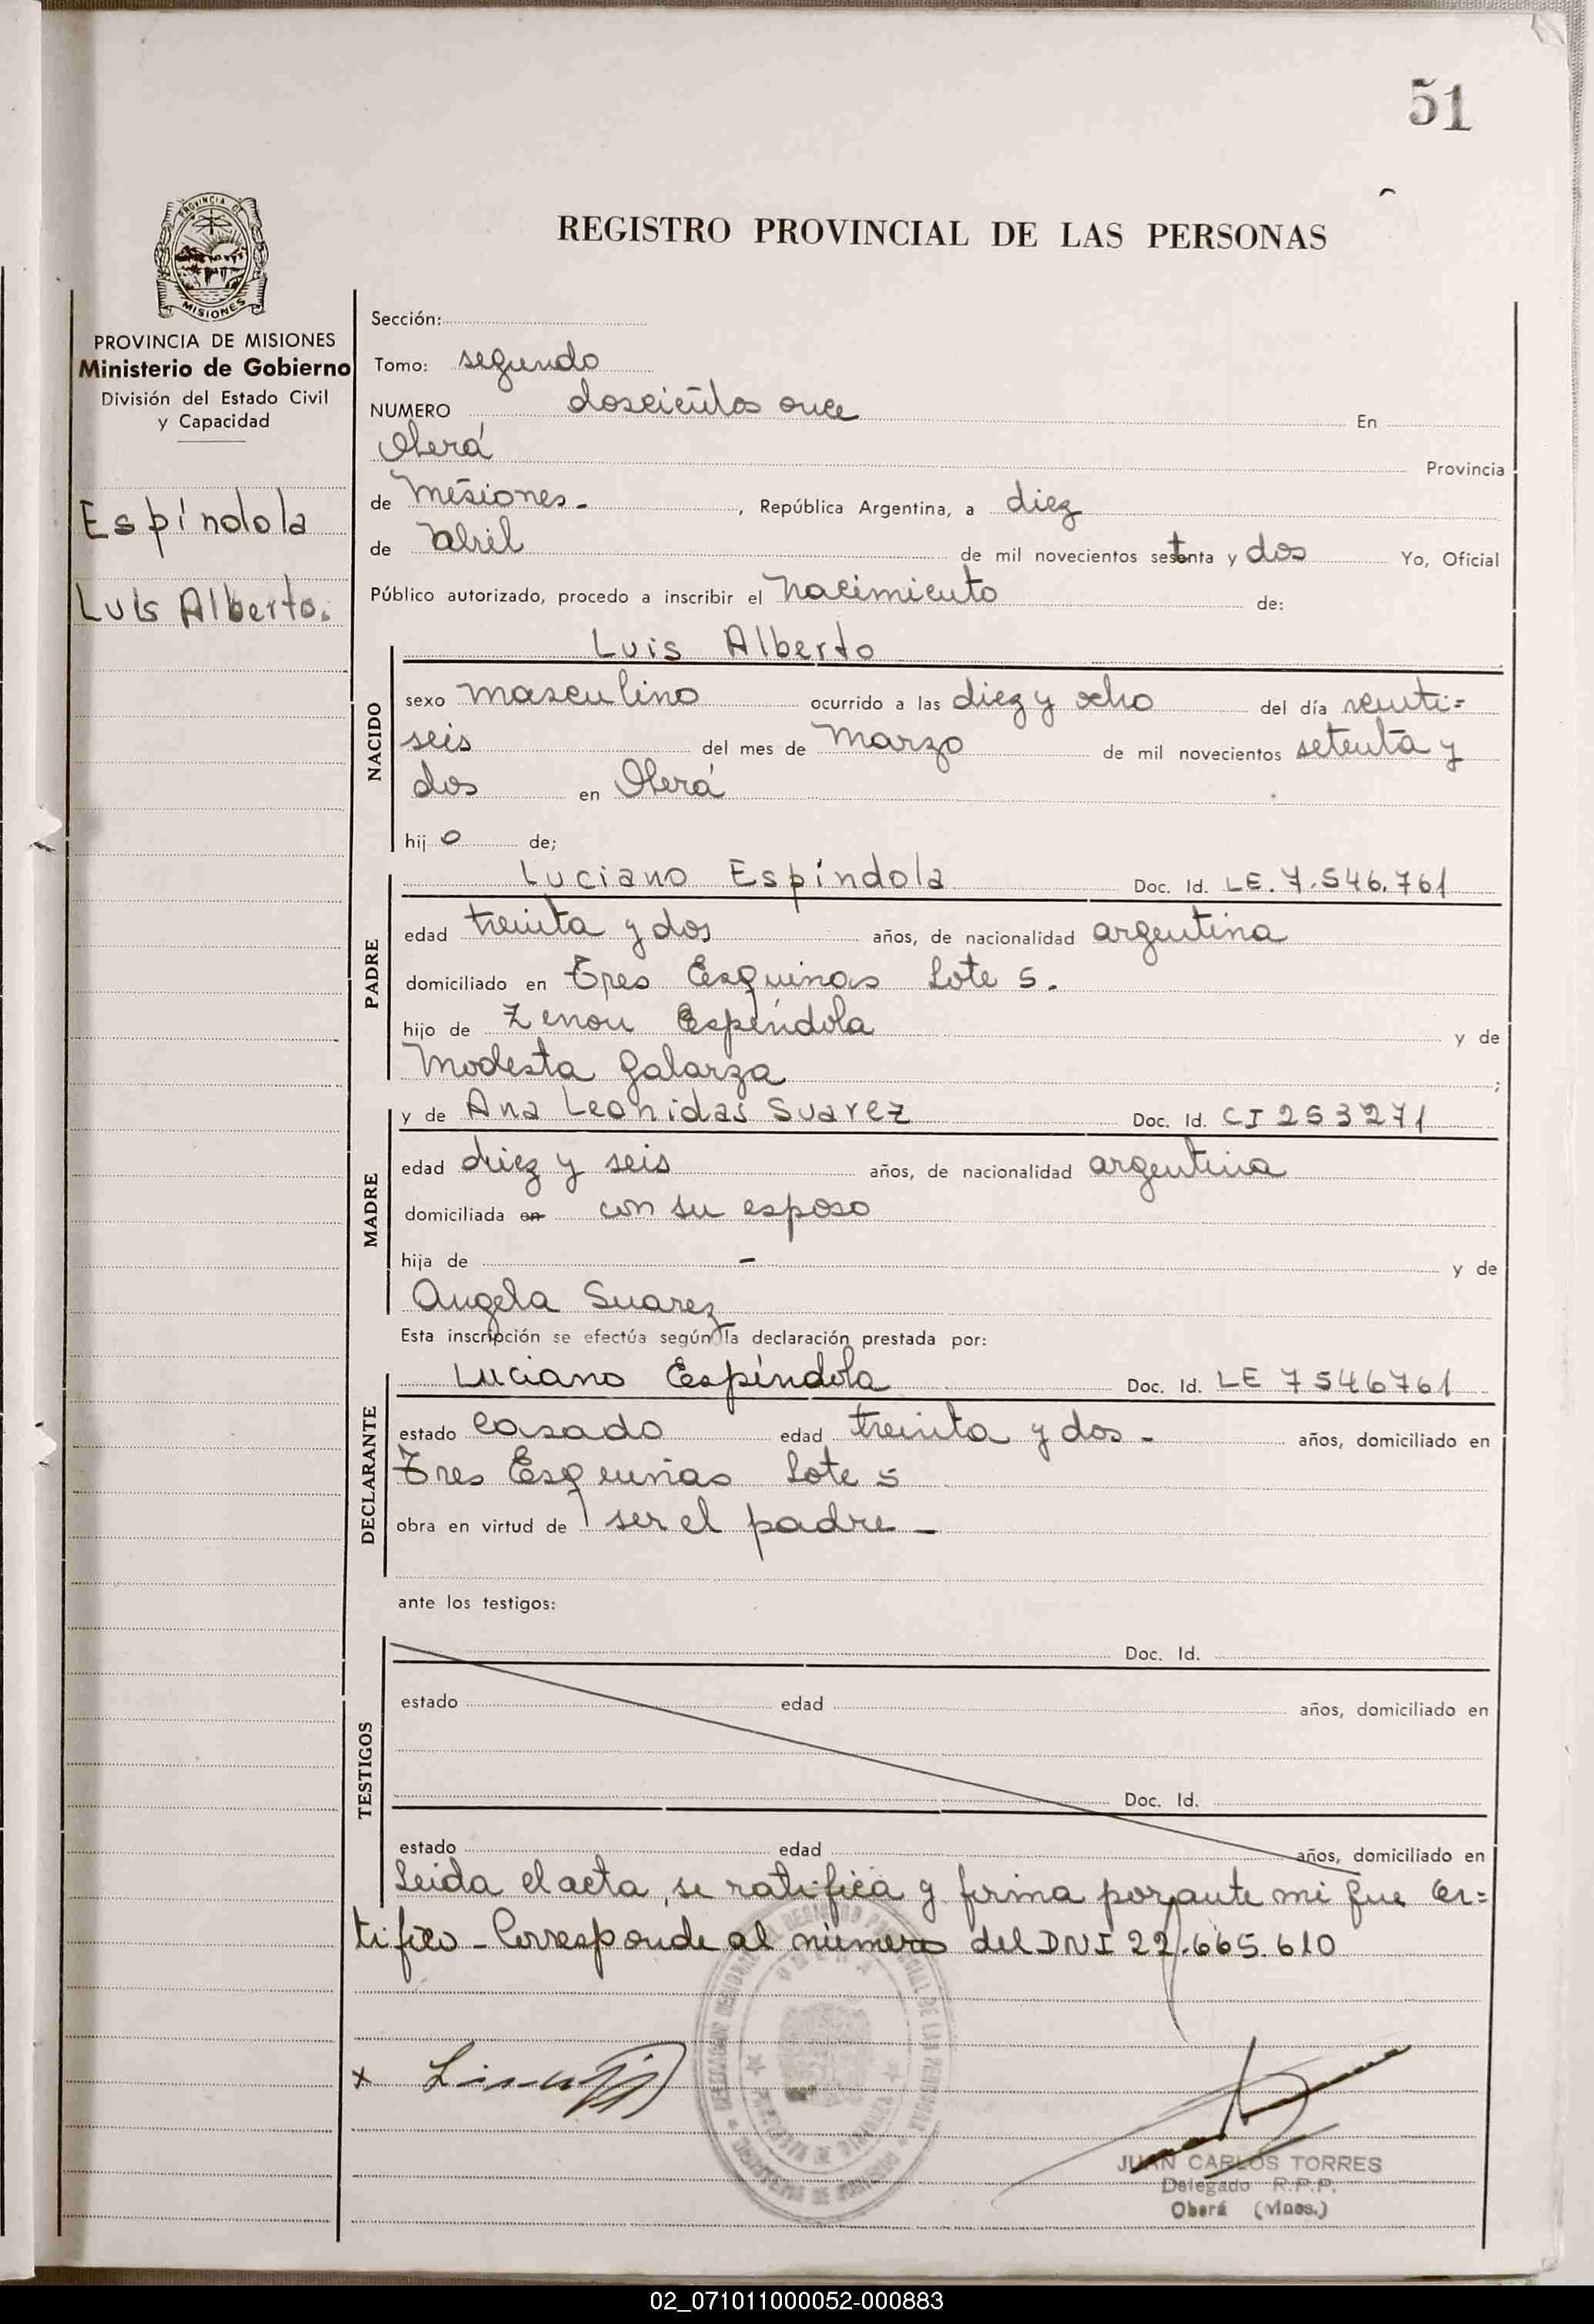 51
PROVINCIA DE
MISIONES
REGISTRO PROVINCIAL DE LAS PERSONAS
PROVINCIA DE MISIONES
Ministerio de Gobierno
División del Estado Civil
y Capacidad
Espíndola
Luis Alberto.
Sección:
Tomo: segundo
NUMERO doscientos once En
Oberá Provincia
de Misiones - , República Argentina, a diez
de Abril de mil novecientos setenta y dos Yo, Oficial
Público autorizado, procedo a inscribir el nacimiento de:
NACIDO
Luis Alberto
sexo masculino ocurrido a las diez y ocho del día veinti=
seis del mes de Marzo de mil novecientos setenta y
dos en Oberá
hijo de;
PADRE
Luciano Espíndola Doc. Id. LE. 7.546.761
edad treinta y dos años, de nacionalidad argentina
domiciliado en Tres Esquinas Lote 5.
hijo de Zenon Espíndola y de
Modesta Galarza ;
MADRE
y de Ana Leonidas Suarez Doc. Id. CI 253271
edad diez y seis años, de nacionalidad argentina
domiciliada en con su esposo
hija de - y de
Angela Suarez
Esta inscripción se efectúa según la declaración prestada por:
DECLARANTE
Luciano Espíndola Doc. Id. LE 7546761
estado casado edad treinta y dos - años, domiciliado en
Tres Esquinas Lote 5
obra en virtud de ser el padre -
ante los testigos:
TESTIGOS
Doc. Id.
estado edad años, domiciliado en
Doc. Id.
estado edad años, domiciliado en
Leida el acta, se ratifica y firma por ante mi que cer=
tifico - Corresponde al número del DNI 22.665.610
x
JUAN CARLOS TORRES
Delegado R.P.P.
Oberá (Mnes.)
02_071011000052-000883